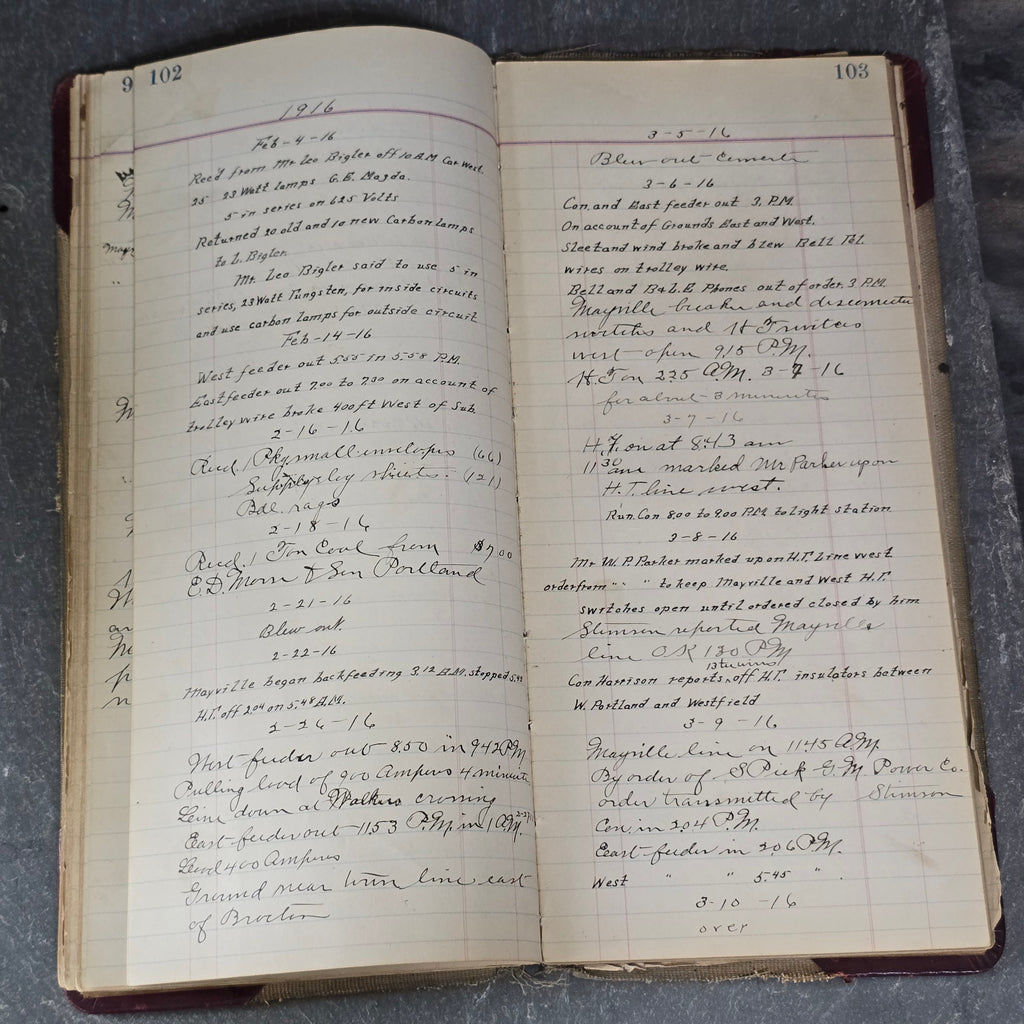 9
102
1916
Feb-4-16
Rec'd from Mr Leo Bigler off 10 A.M Car West.
25 23 Watt lamps G.E. Mazda.
5 in series on 625 Volts
Returned 20 old and 10 new Carbon lamps
to L. Bigler.
Mr. Leo Bigler said to use 5 in
series, 23 Watt Tungsten, for inside circuits
and use carbon lamps for outside circuit
Feb-14-16
West feeder out 5.55 in 5.58 P.M.
East feeder out 7.00 to 7.30 on account of
trolley wire broke 400 ft West of Sub.
2-16-16
Recd. 1 Pkg small envelopes (66)
Supply log sheets. (121)
Bdl. rags
2-18-16
Recd. 1 Ton Coal from $7.00
E.D. Morn & Son Portland
2-21-16
Blew out.
2-22-16
Mayville began backfeeding 3.12 A.M. stopped 5.42
H.T. off 2.04 on 5.48 A.M.
2-26-16
West feeder out 8.50 in 9.42 P.M
Pulling load of 900 Amperes 4 minutes
Line down at Walkers crossing
East feeder out 11.53 P.M. in 1 A.M. 2-27-16
Load 400 Amperes
Ground near town line east
of Brocton
103
3-5-16
Blew out Converter
3-6-16
Con. and East feeder out 3. P.M.
On account of Grounds East and West.
Sleet and wind broke and blew Bell Tel.
wires on trolley wire.
Bell and B & L.E Phones out of order. 3 P.M.
Mayville breaker and disconnects
switches and H T switches
west open 9.15 P.M.
H.T on 2.25 A.M. 3-7-16
for about 3 minutes
3-7-16
H.T. on at 8.43 am
11 30 am marked Mr Parker up on
H.T. line west.
Run. Con 8.00 to 9.00 P.M. to light station
2-8-16
Mr W. P. Parker marked up on H.T. Line west
order from " " " to keep Mayville and West H.T.
switches open until ordered closed by him
Stimson reported Mayville
line OK 1.30 P.M
Con Harrison reports, off H.T. insulators between
W. Portland and Westfield
3-9-16
Mayville line on 11.45 A.M.
By order of S Pick G.M. Power Co.
order transmitted by Stimson
Con. in 2.04 P.M.
East feeder in 2.06 P.M.
West " " 5.45 " .
3-10-16
over